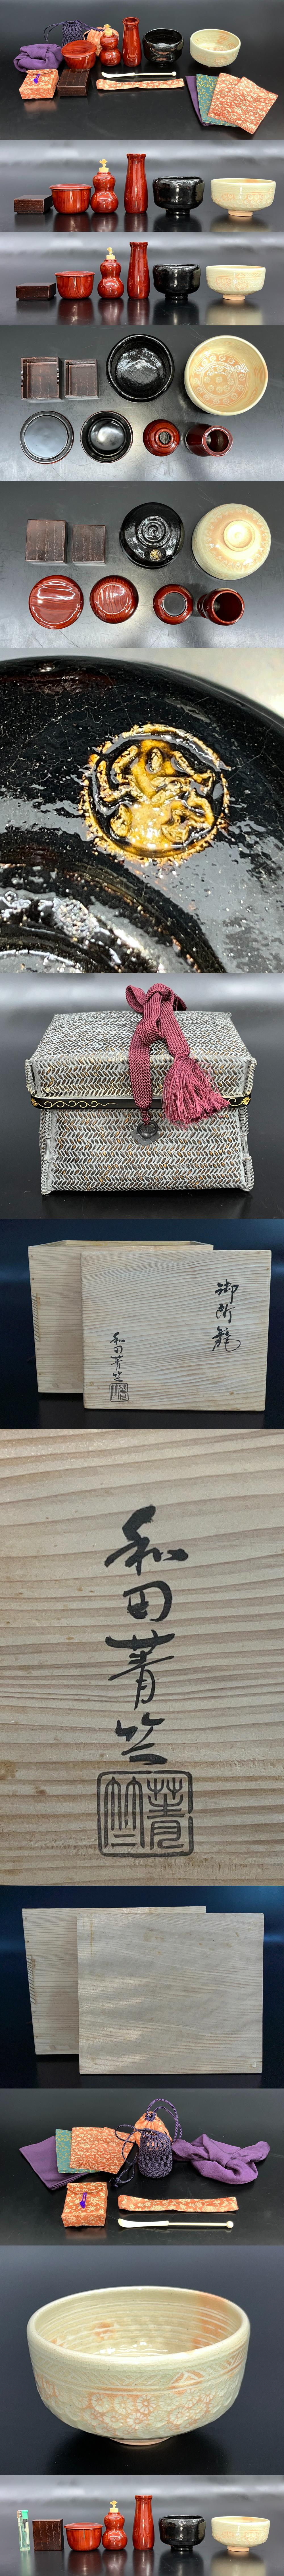 御所籠
和田菁竺
和田菁竺
菁竺